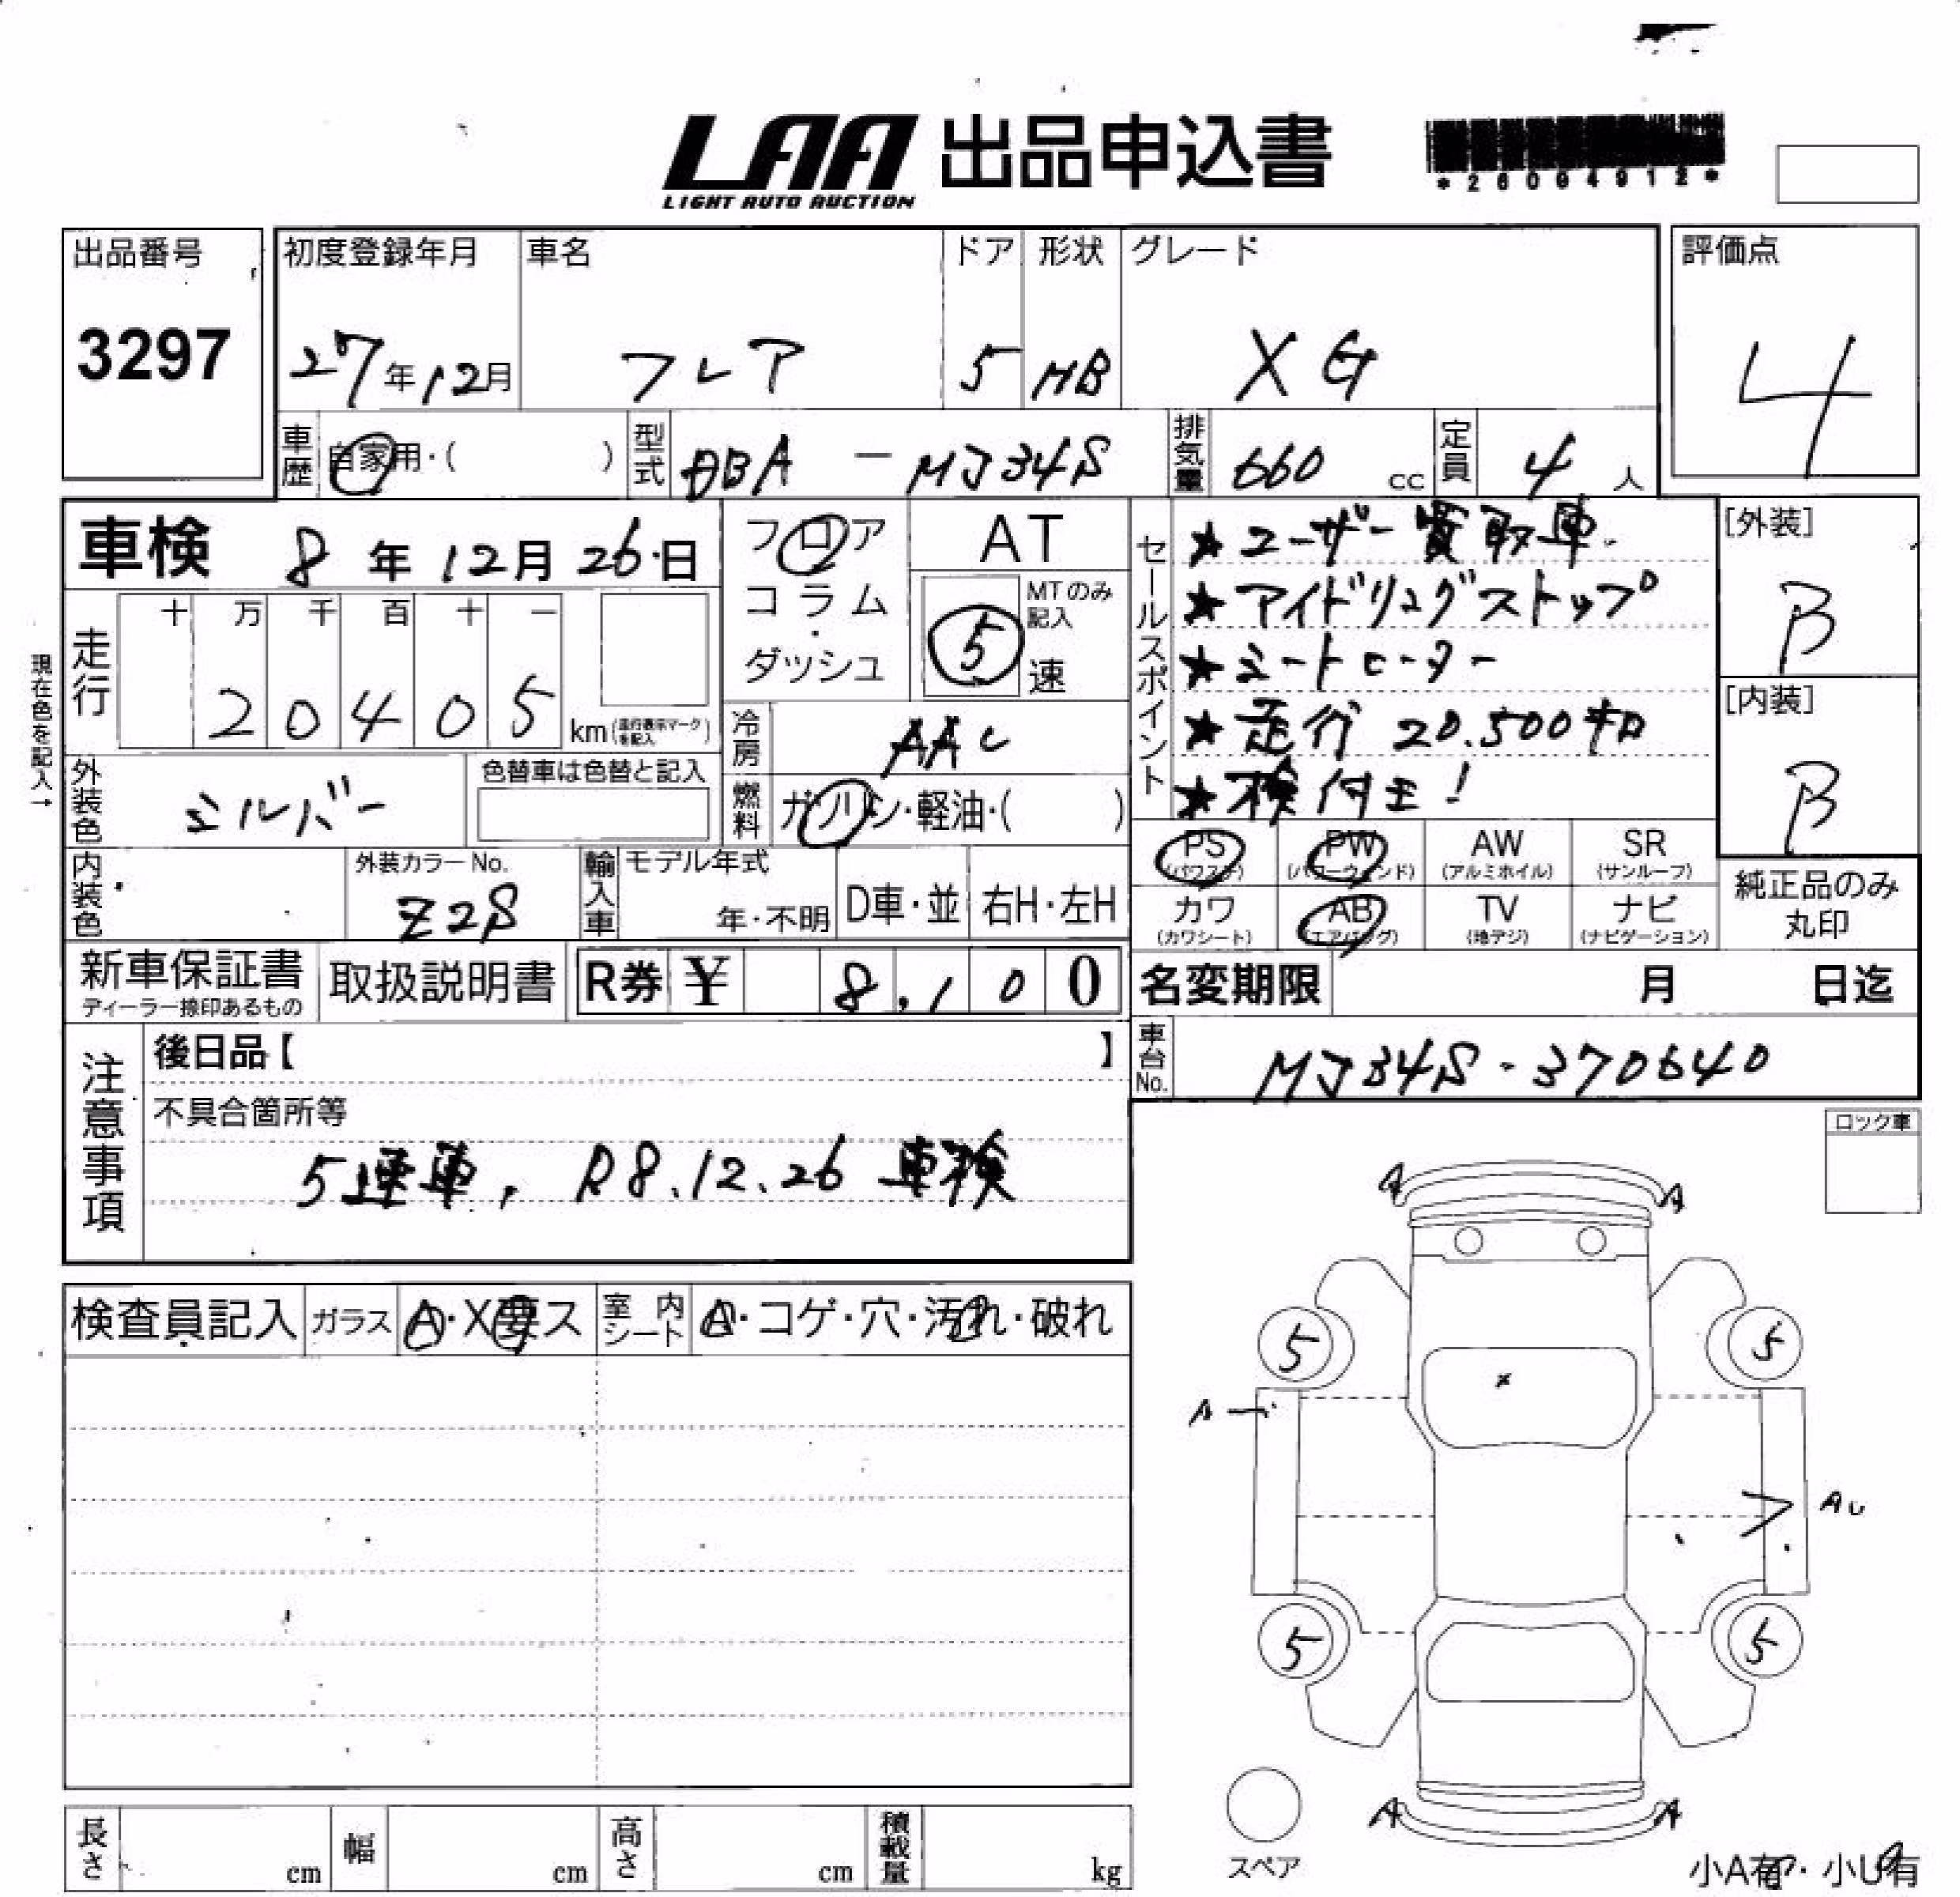 LAA 出品申込書
LIGHT AUTO AUCTION
*26094912*
出品番号 初度登録年月 車名 ドア 形状 グレード 評価点
3297 27年12月 フレア 5 HB XG 4
車歴 自家用・( ) 型式 DBA - MJ34S 排気量 660 cc 定員 4 人
車検 8年12月26日
フロア
コラム・
ダッシュ
AT
MTのみ記入
5 速
セールスポイント
★ユーザー買取車
★アイドリングストップ
★シートヒーター
★走行 20.500キロ
★検付き!
[外装]
B
[内装]
B
現在色を記入→
走行 十 万 千 百 十 一
20405 km (走行表示マークを記入)
冷房 AAC
外装色 シルバー 色替車は色替と記入
燃料 ガソリン・軽油・( )
PS (パワステ) PW (パワーウィンド) AW (アルミホイル) SR (サンルーフ)
カワ (カワシート) AB (エアバッグ) TV (地デジ) ナビ (ナビゲーション)
純正品のみ
丸印
内装色 外装カラーNo. Z2S 輸入車 モデル年式 年・不明 D車・並 右H・左H
新車保証書 ディーラー捺印あるもの 取扱説明書 R券 ¥ 8,100
名変期限 月 日迄
車台No. MJ34S-370640
注意事項
後日品【 】
不具合箇所等
5速車, R8.12.26 車検
ロック車
検査員記入 ガラス A・X要ス 室内シート A・コゲ・穴・汚れ・破れ
A A
5 5
A
AU
5 5
A A
スペア
小A有・小U有
長さ cm 幅 cm 高さ cm 積載量 kg